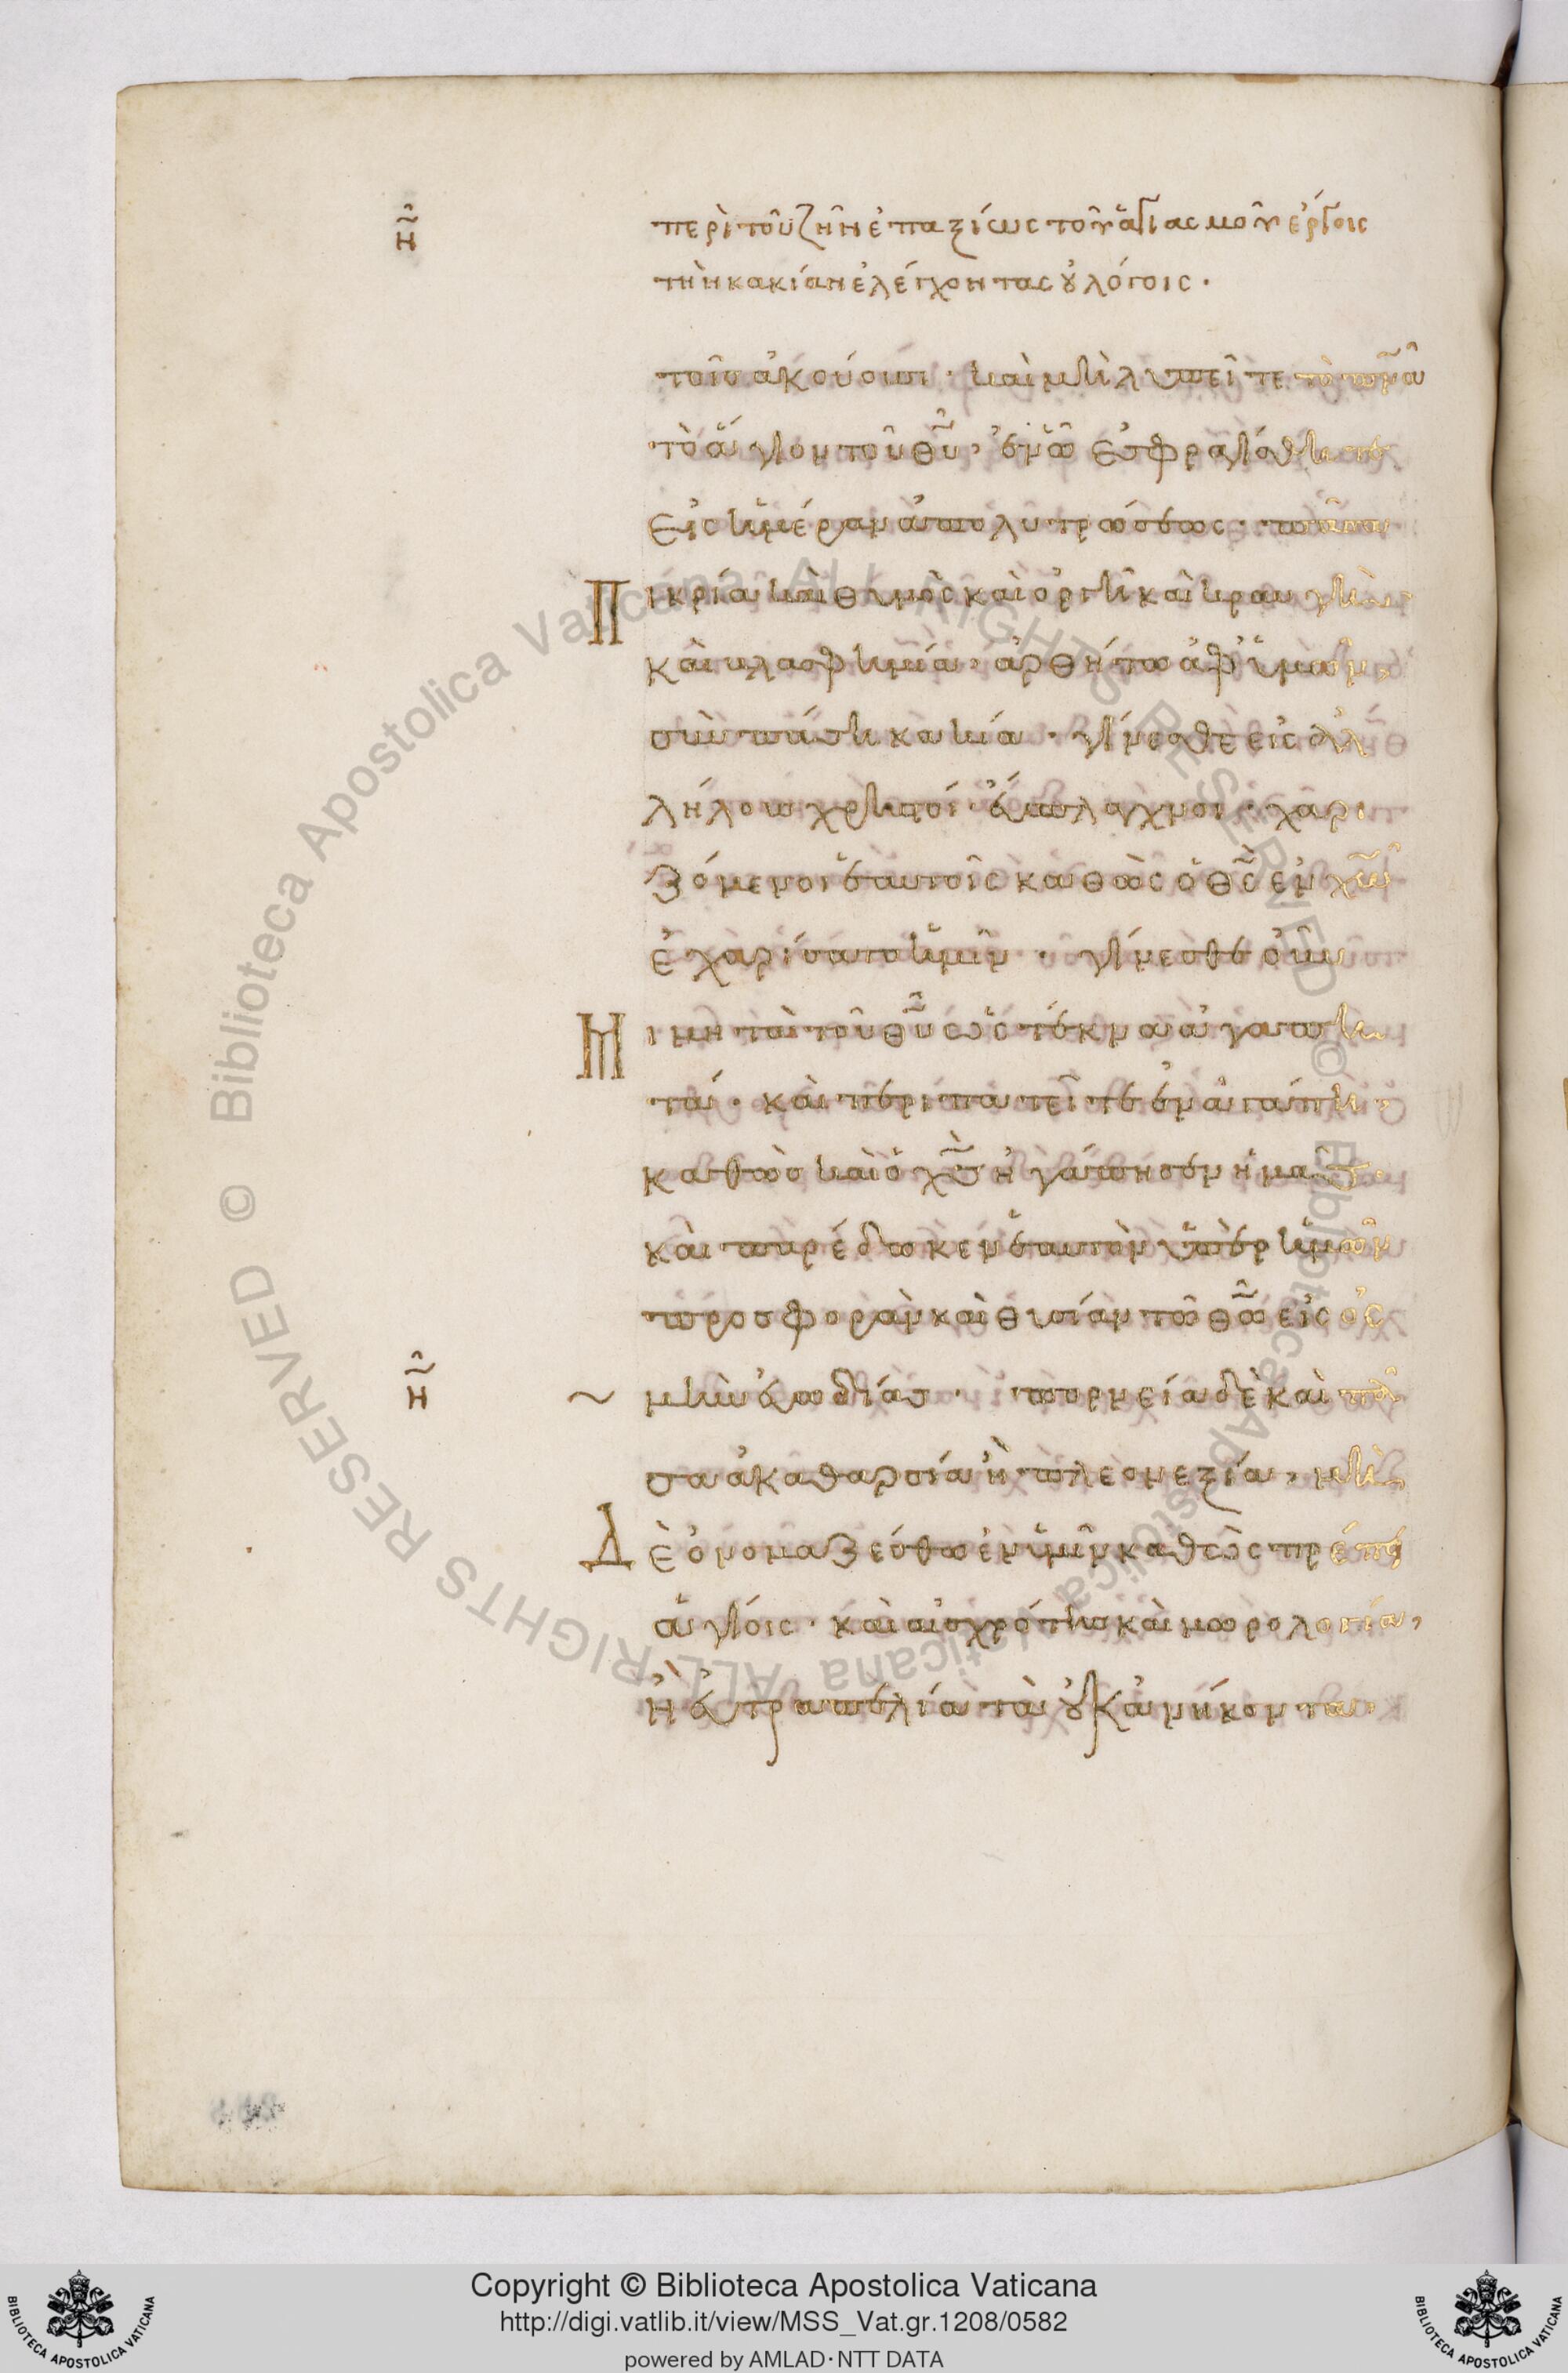 η
περὶ τοῦ ζῆν ἐπαξίως τοῦ ἁγιασμοῦ ἔργοις
τὴν κακίαν ἐλέγχοντας οὐ λόγοις·
τοῖς ἀκούουσι· καὶ μὴ λυπεῖτε τὸ πνᾶ
τὸ ἅγιον τοῦ θῦ· ἐν ᾧ ἐσφραγίσθητε
εἰς ἡμέραν ἀπολυτρώσεως· πᾶσα
Πικρία καὶ θυμὸς καὶ ὀργὴ καὶ κραυγὴ
καὶ βλασφημία· ἀρθήτω ἀφ' ὑμῶν
σὺν πάσῃ κακία· γίνεσθε εἰς ἀλ
λήλους χρηστοί· εὔσπλαγχνοι· χαρι
ζόμενοι ἑαυτοῖς καθὼς ὁ θς ἐν χῶ
ἐχαρίσατο ἡμῖν· γίνεσθε οὖν
Μιμηταὶ τοῦ θῦ ὡς τέκνα ἀγαπη
τά· καὶ περιπατεῖτε ἐν ἀγάπη·
καθὼς καὶ ὁ χς ἠγάπησεν ἡμᾶς
καὶ παρέδωκεν ἑαυτὸν ὑπὲρ ἡμῶν
προσφορὰν καὶ θυσίαν τῶ θῶ εἰς ὀσ
η ~ μὴν εὐωδίας· πορνεία δὲ καὶ πᾶ
σα ἀκαθαρσία ἢ πλεονεξία, μη
Δὲ ὀνομαζέσθω ἐν ὑμῖν καθὼς πρέπει
ἁγίοις· καὶ αἰσχρότης καὶ μωρολογία,
ἢ εὐτραπελία τὰ οὐκ ἀνήκοντα·
Biblioteca Apostolica Vaticana ALL RIGHTS RESERVED © Biblioteca Apostolica Vaticana ALL RIGHTS RESERVED ©
Copyright © Biblioteca Apostolica Vaticana
http://digi.vatlib.it/view/MSS_Vat.gr.1208/0582
powered by AMLAD·NTT DATA
BIBLIOTECA APOSTOLICA VATICANA
BIBLIOTECA APOSTOLICA VATICANA